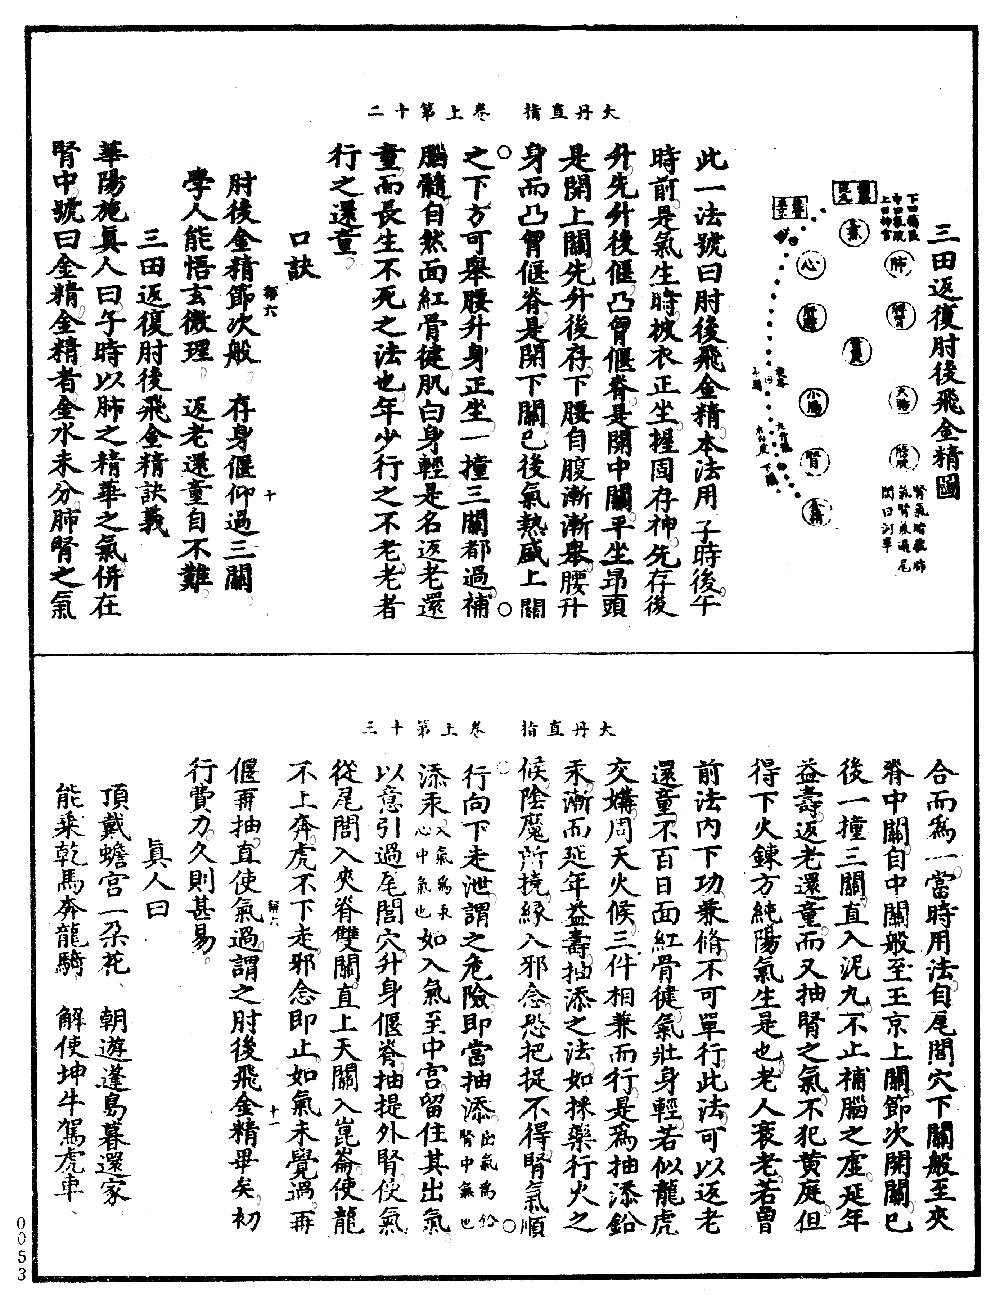 大丹直指　卷上第十二
三田返復肘後飛金精圖
肺
心
腎
小腸
大腸
膀胱
此一法號曰肘後飛金精本法用子時後午
時前是氣生時披衣正坐握固存神先存後
升先升後偃凸胷偃脊是開中關平坐昂頭
是開上關先升後存下腰自腹漸漸舉腰升
身而凸胷偃脊是開下關已後氣熱盛上關
之下方可舉腰升身正坐一撞三關都過補
腦髓自然面紅骨健肌白身輕是名返老還
童而長生不死之法也年少行之不老老者
行之還童
口訣
肘後金精節次般　存身偃仰過三關
學人能悟玄微理　返老還童自不難
三田返復肘後飛金精訣義
華陽施眞人曰子時以肺之精華之氣併在
腎中號曰金精金精者金水未分肺腎之氣
大丹直指　卷上第十三
合而爲一當時用法自尾閭穴下關般至夾
脊中關自中關般至玉京上關節次開關已
後一撞三關直入泥九不止補腦之虛延年
益壽返老還童而又抽腎之氣不犯黃庭但
得下火鍊方純陽氣生是也老人衰老若曾
前法内下功兼脩不可單行此法可以返老
還童不百日面紅骨健氣壯身輕若似龍虎
交媾周天火候三件相兼而行是爲抽添鉛
汞漸而延年益壽抽添之法如採藥行火之
候陰魔所撓緣入邪念恐把捉不得腎氣順
行向下走泄謂之危險即當抽添出氣爲鉛腎中氣也
添汞入氣爲汞心中氣也如入氣至中宮留住其出氣
以意引過尾閭穴升身偃脊抽提外腎使氣
從尾閭入夾脊雙關直上天關入崑崙使龍
不上奔虎不下走邪念即止如氣未覺過再
偃再抽直使氣過謂之肘後飛金精畢矣初
行費力久則甚易
眞人曰
頂戴蟾宮一朶花　朝遊蓬島暮還家
能乘乾馬奔龍騎　解使坤牛駕虎車
0053